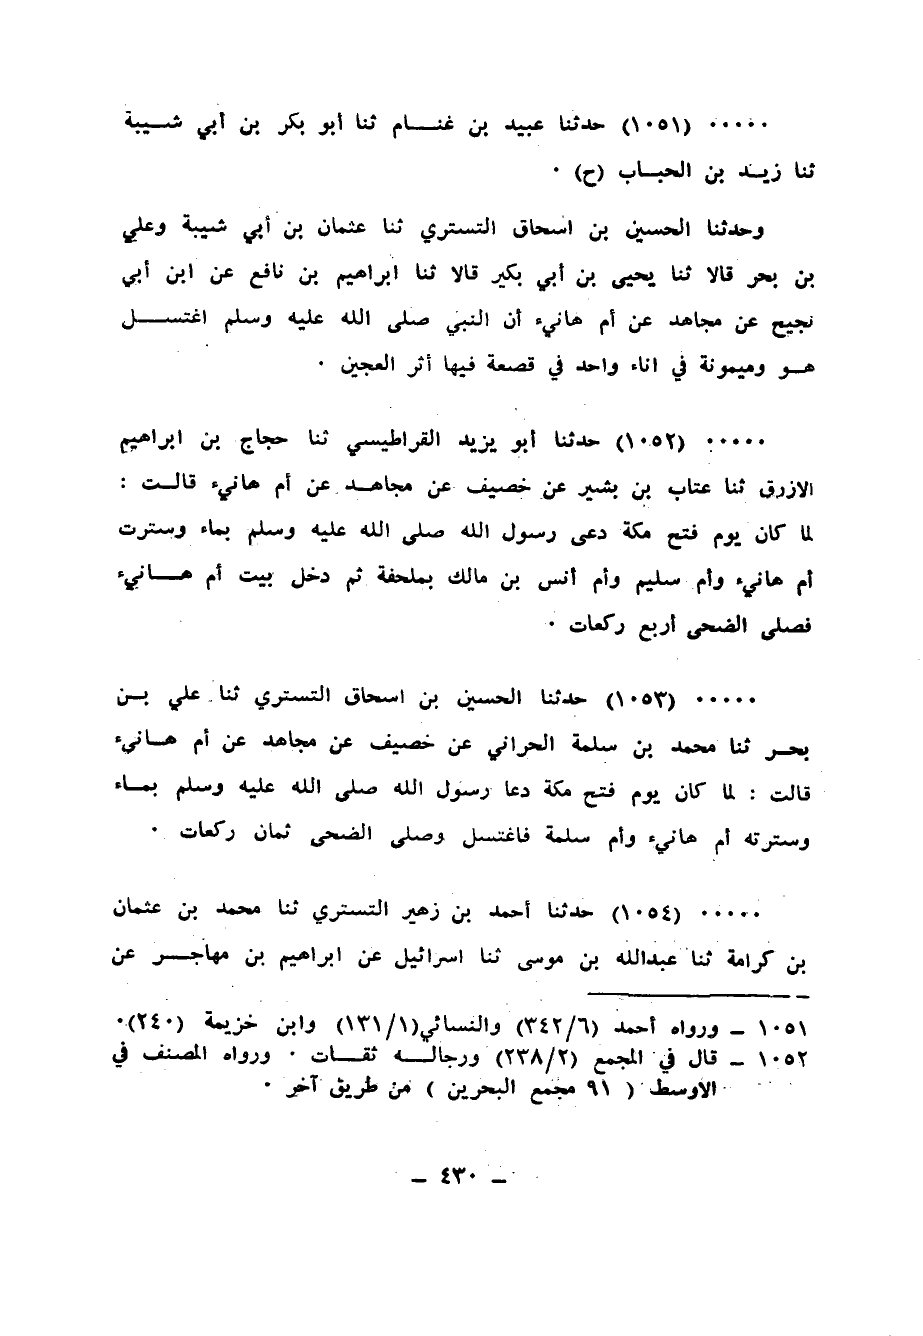 ٠٠٠٠٠ (١٠٥١) حدثنا عبيد بن غنـــام ثنا أبو بكر بن أبي شـــيبة
ثنا زيـــد بن الحبـــاب (ح) ٠
وحدثنا الحسين بن اسحاق التستري ثنا عثمان بن أبي شيبة وعلي
بن بحر قالا ثنا يحيى بن أبي بكير قالا ثنا ابراهيم بن نافع عن ابن أبي
نجيح عن مجاهد عن أم هانيء أن النبي صلى الله عليه وسلم اغتســـل
هـــو وميمونة في اناء واحد في قصعة فيها أثر العجين ٠
٠٠٠٠٠ (١٠٥٢) حدثنا أبو يزيد القراطيسي ثنا حجاج بن ابراهيم
الازرق ثنا عتاب بن بشير عن خصيف عن مجاهـــد عن أم هانيء قالـــت :
لما كان يوم فتح مكة دعى رسول الله صلى الله عليه وسلم بماء وسترت
أم هانيء وأم سليم وأم أنس بن مالك بملحفة ثم دخل بيت أم هـــانيء
فصلى الضحى أربع ركعات ٠
٠٠٠٠٠ (١٠٥٣) حدثنا الحسين بن اسحاق التستري ثنا علي بـــن
بحـــر ثنا محمد بن سلمة الحراني عن خصيف عن مجاهد عن أم هـــانيء
قالت : لما كان يوم فتح مكة دعا رسول الله صلى الله عليه وسلم بمـــاء
وسترته أم هانيء وأم سلمة فاغتسل وصلى الضحى ثمان ركعات ٠
٠٠٠٠٠ (١٠٥٤) حدثنا أحمد بن زهير التستري ثنا محمد بن عثمان
بن كرامة ثنا عبدالله بن موسى ثنا اسرائيل عن ابراهيم بن مهاجـــر عن
١٠٥١ ـ ورواه أحمد (٣٤٢/٦) والنسائي(١٣١/١) وابن خزيمة (٢٤٠)٠
١٠٥٢ ـ قال في المجمع (٢٣٨/٢) ورجالـــه ثقـــات ٠ ورواه المصنف في
الأوسط ( ٩١ مجمع البحرين ) من طريق آخر ٠
ـ ٤٣٠ ـ